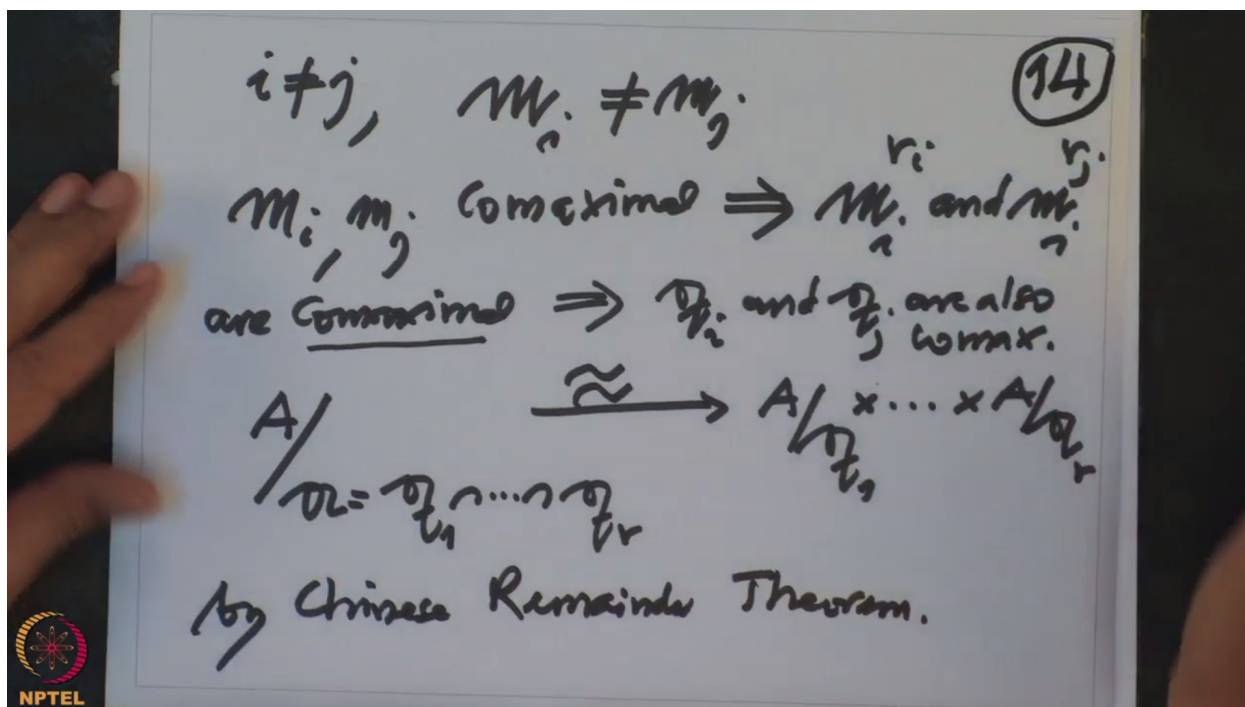 i ≠ j, 𝔪_i ≠ 𝔪_j
14
𝔪_i, 𝔪_j Comaximal ⟹ 𝔪_i^{r_i} and 𝔪_j^{r_j}
are Comaximal ⟹ 𝔮_i and 𝔮_j are also
comax.
A/𝔞 = 𝔮_1 ∩ ... ∩ 𝔮_r ≅→ A/𝔮_1 × ... × A/𝔮_r
by Chinese Remainder Theorem.
NPTEL